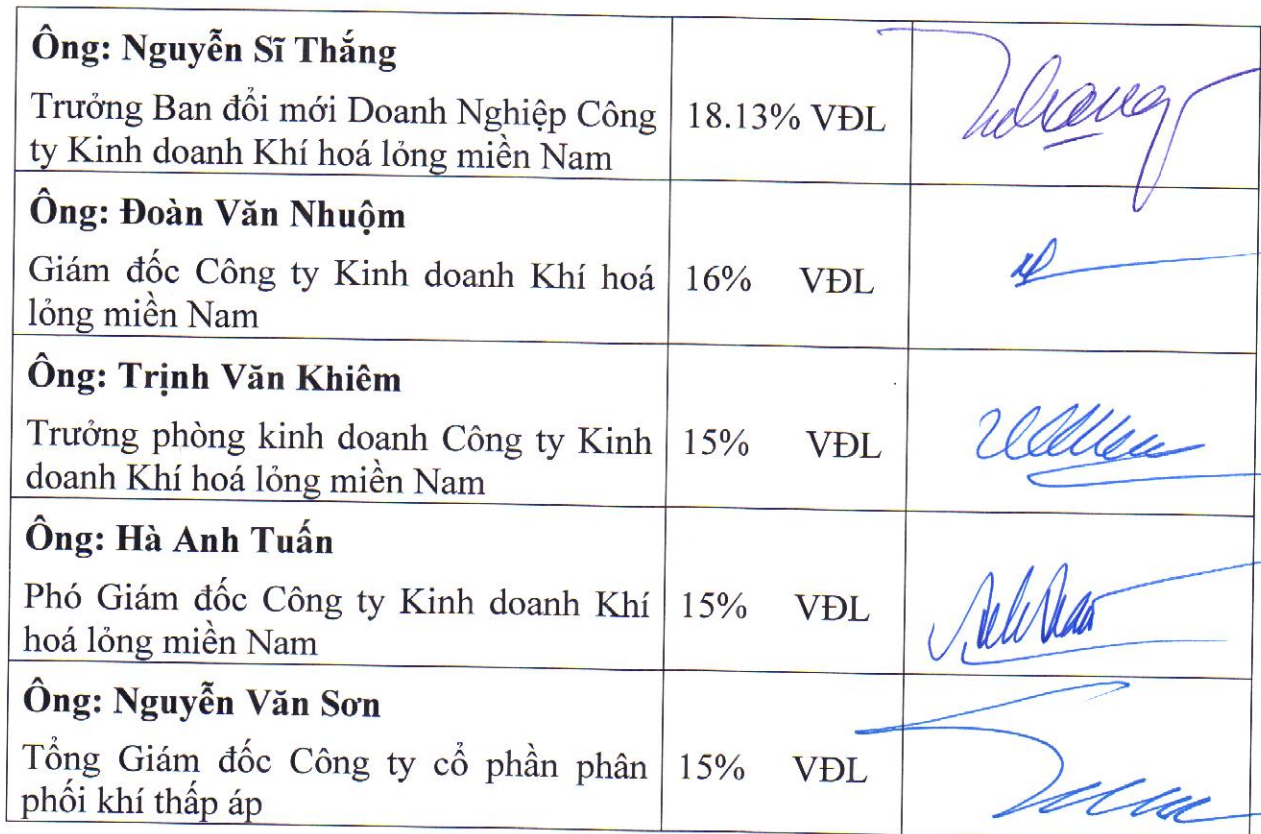 Ông: Nguyễn Sĩ Thắng
Trưởng Ban đổi mới Doanh Nghiệp Công
ty Kinh doanh Khí hoá lỏng miền Nam
18.13% VĐL
Ông: Đoàn Văn Nhuộm
Giám đốc Công ty Kinh doanh Khí hoá
lỏng miền Nam
16% VĐL
Ông: Trịnh Văn Khiêm
Trưởng phòng kinh doanh Công ty Kinh
doanh Khí hoá lỏng miền Nam
15% VĐL
Ông: Hà Anh Tuấn
Phó Giám đốc Công ty Kinh doanh Khí
hoá lỏng miền Nam
15% VĐL
Ông: Nguyễn Văn Sơn
Tổng Giám đốc Công ty cổ phần phân
phối khí thấp áp
15% VĐL